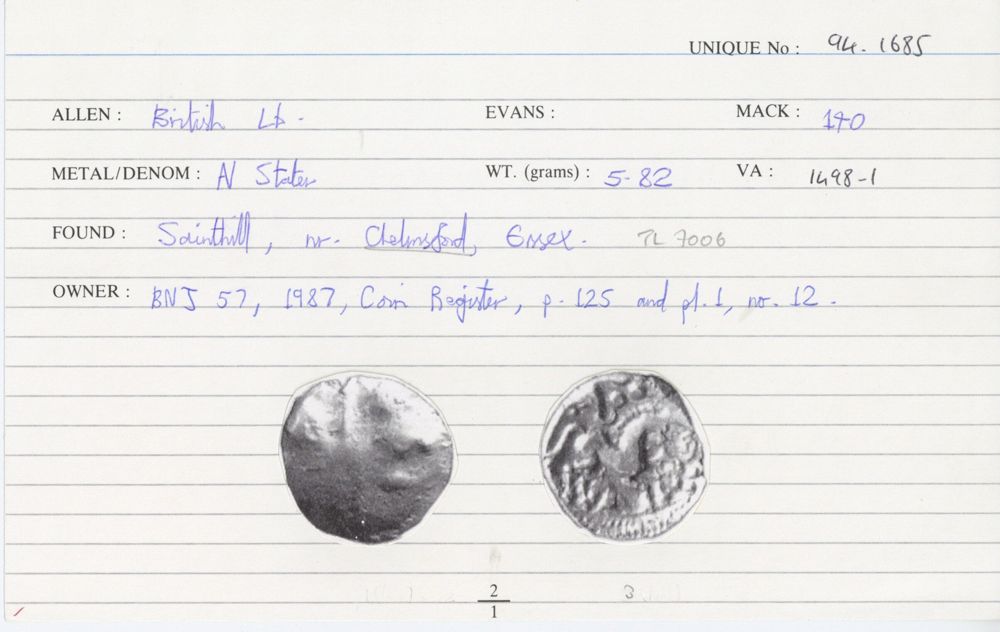 UNIQUE No : 94. 1685
ALLEN : British Lb. EVANS : MACK : 140
METAL/DENOM : N Stater WT. (grams) : 5.82 VA : 1498-1
FOUND : Sainthill, nr. Chelmsford, Essex. TL 7006
OWNER : BNJ 57, 1987, Coin Register, p. 125 and pl. 1, no. 12.
2
1
3